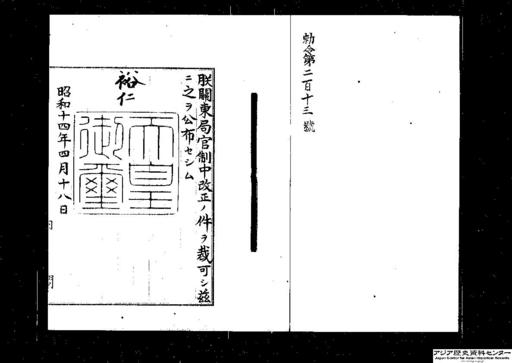 勅令第二百十三號
朕關東局官制中改正ノ件ヲ裁可シ茲
ニ之ヲ公布セシム
裕仁
天皇
御璽
昭和十四年四月十八日
内閣
アジア歴史資料センター
Japan Center for Asian Historical Records